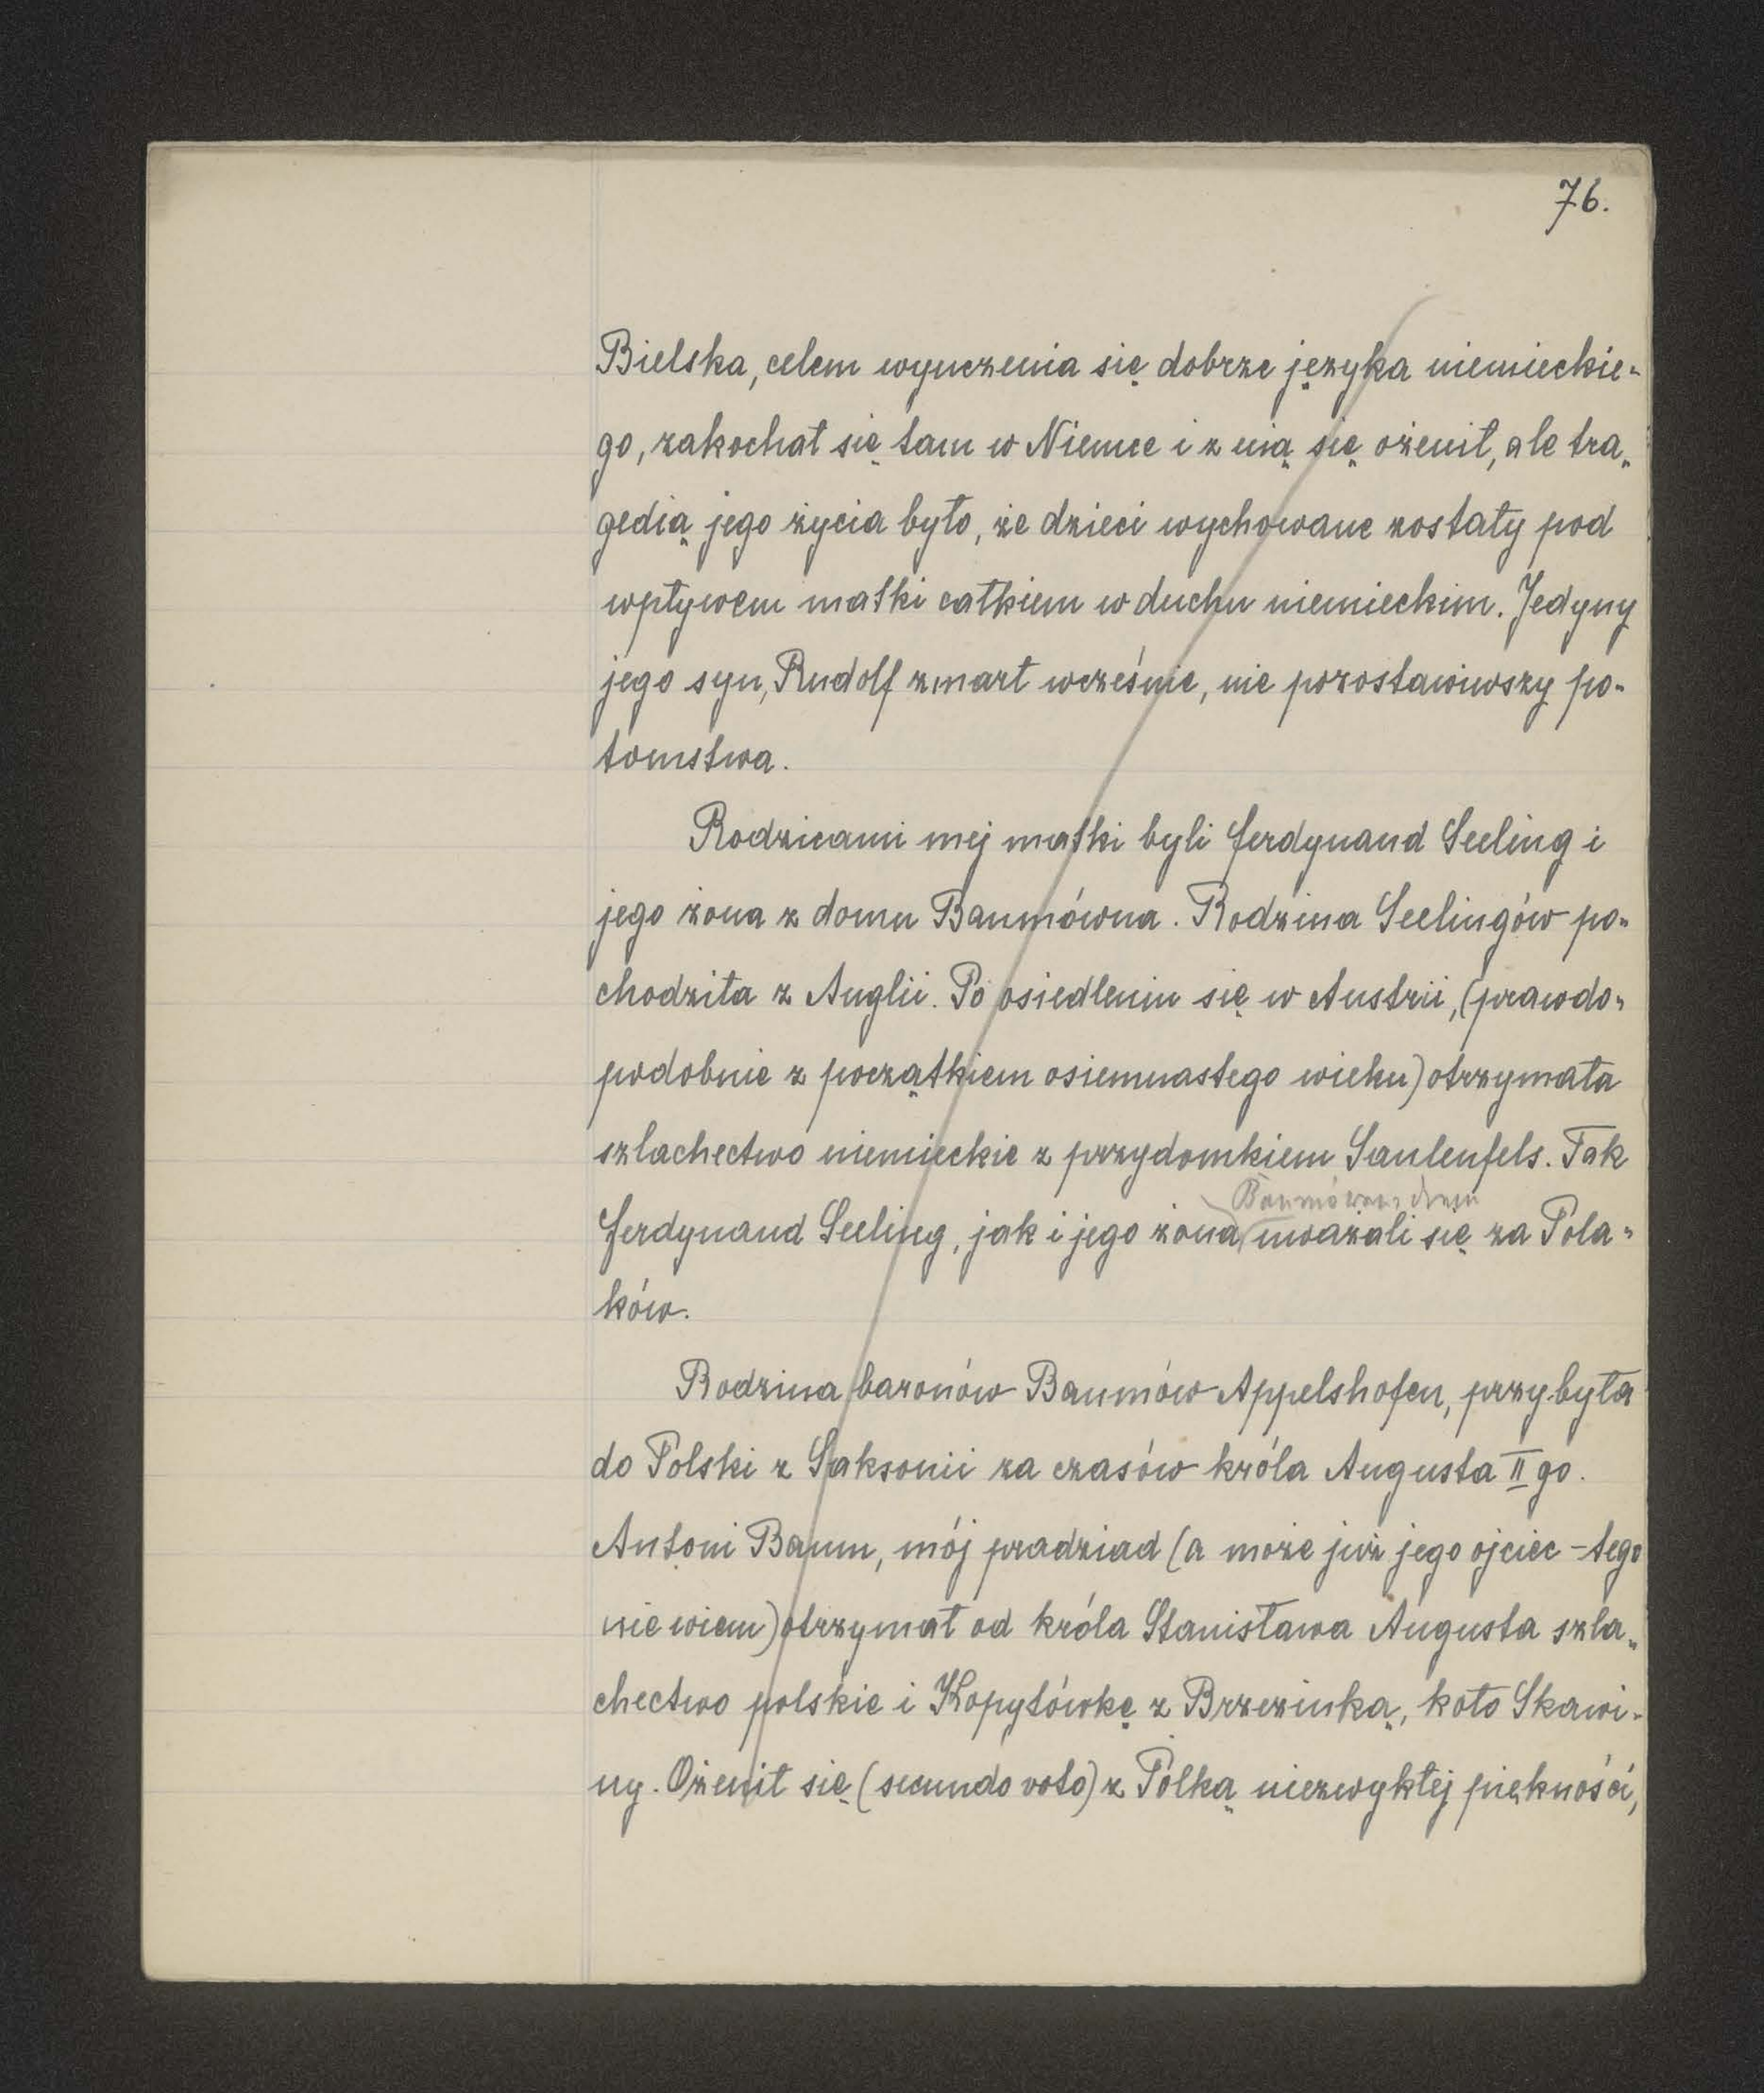 76.
Bielska, celem wyuczenia się dobrze języka niemieckie-
go, zakochał się tam w Niemce i z nią się ożenił, ale tra-
gedią jego życia było, że dzieci wychowane zostały pod
wpływem matki całkiem w duchu niemieckim. Jedyny
jego syn, Rudolf zmarł wcześnie, nie pozostawiwszy po-
tomstwa.
Rodzicami mej matki byli Ferdynand Seeling i
jego żona z domu Baumówna. Rodzina Seelingów po-
chodziła z Anglii. Po osiedleniu się w Austrii, (prawdo-
podobnie z początkiem osiemnastego wieku) otrzymała
szlachectwo niemieckie z przydomkiem Saulenfels. Tak
Baumówna
Ferdynand Seeling, jak i jego żona, uważali się za Pola-
ków.
Rodzina baronów Baumów Appelshofen, przybyła
do Polski z Saksonii za czasów króla Augusta II go.
Antoni Baum, mój pradziad (a może już jego ojciec - tego
nie wiem) otrzymał od króla Stanisława Augusta szla-
chectwo polskie i Kopytówkę z Brzezinką, koło Skawi-
ny. Ożenił się (secundo voto) z Polką niezwykłej piękności,